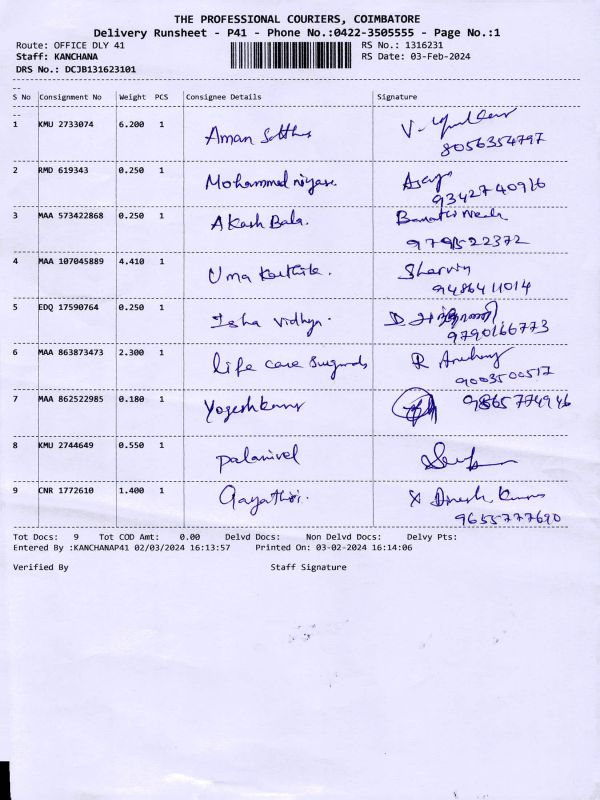 THE PROFESSIONAL COURIERS, COIMBATORE
Delivery Runsheet - P41 - Phone No.:0422-3505555 - Page No.:1
Route: OFFICE DLY 41 RS No.: 1316231
Staff: KANCHANA RS Date: 03-Feb-2024
DRS No.: DCJB131623101
--
S No Consignment No Weight PCS Consignee Details Signature
--
1 KMU 2733074 6.200 1 Aman
8056354797
2 RMD 619343 0.250 1 Mohammed niyase.
9342740916
3 MAA 573422868 0.250 1 Akash Bala.
4 MAA 107045889 4.410 1 Uma Karthik.
9486411014
5 EDQ 17590764 0.250 1 Isha vidhya.
9790166773
6 MAA 863873473 2.300 1 life care R
9003500517
7 MAA 862522985 0.180 1 Yogeshkumar 9865774946
8 KMU 2744649 0.550 1 palanivel
9 CNR 1772610 1.400 1 Gayathri. Dinesh Kumar
9655777690
Tot Docs: 9 Tot COD Amt: 0.00 Delvd Docs: Non Delvd Docs: Delvy Pts:
Entered By :KANCHANAP41 02/03/2024 16:13:57 Printed On: 03-02-2024 16:14:06
Verified By Staff Signature